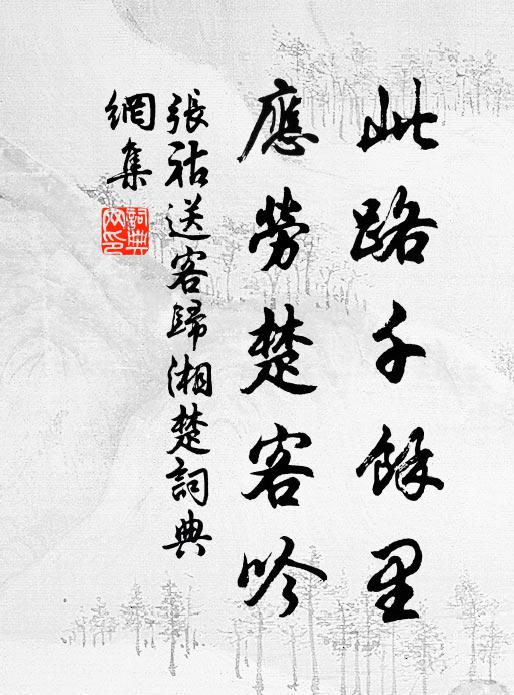 此路千餘里
應勞楚客吟
張祜送客歸湘楚詞典
網集
詞典網印